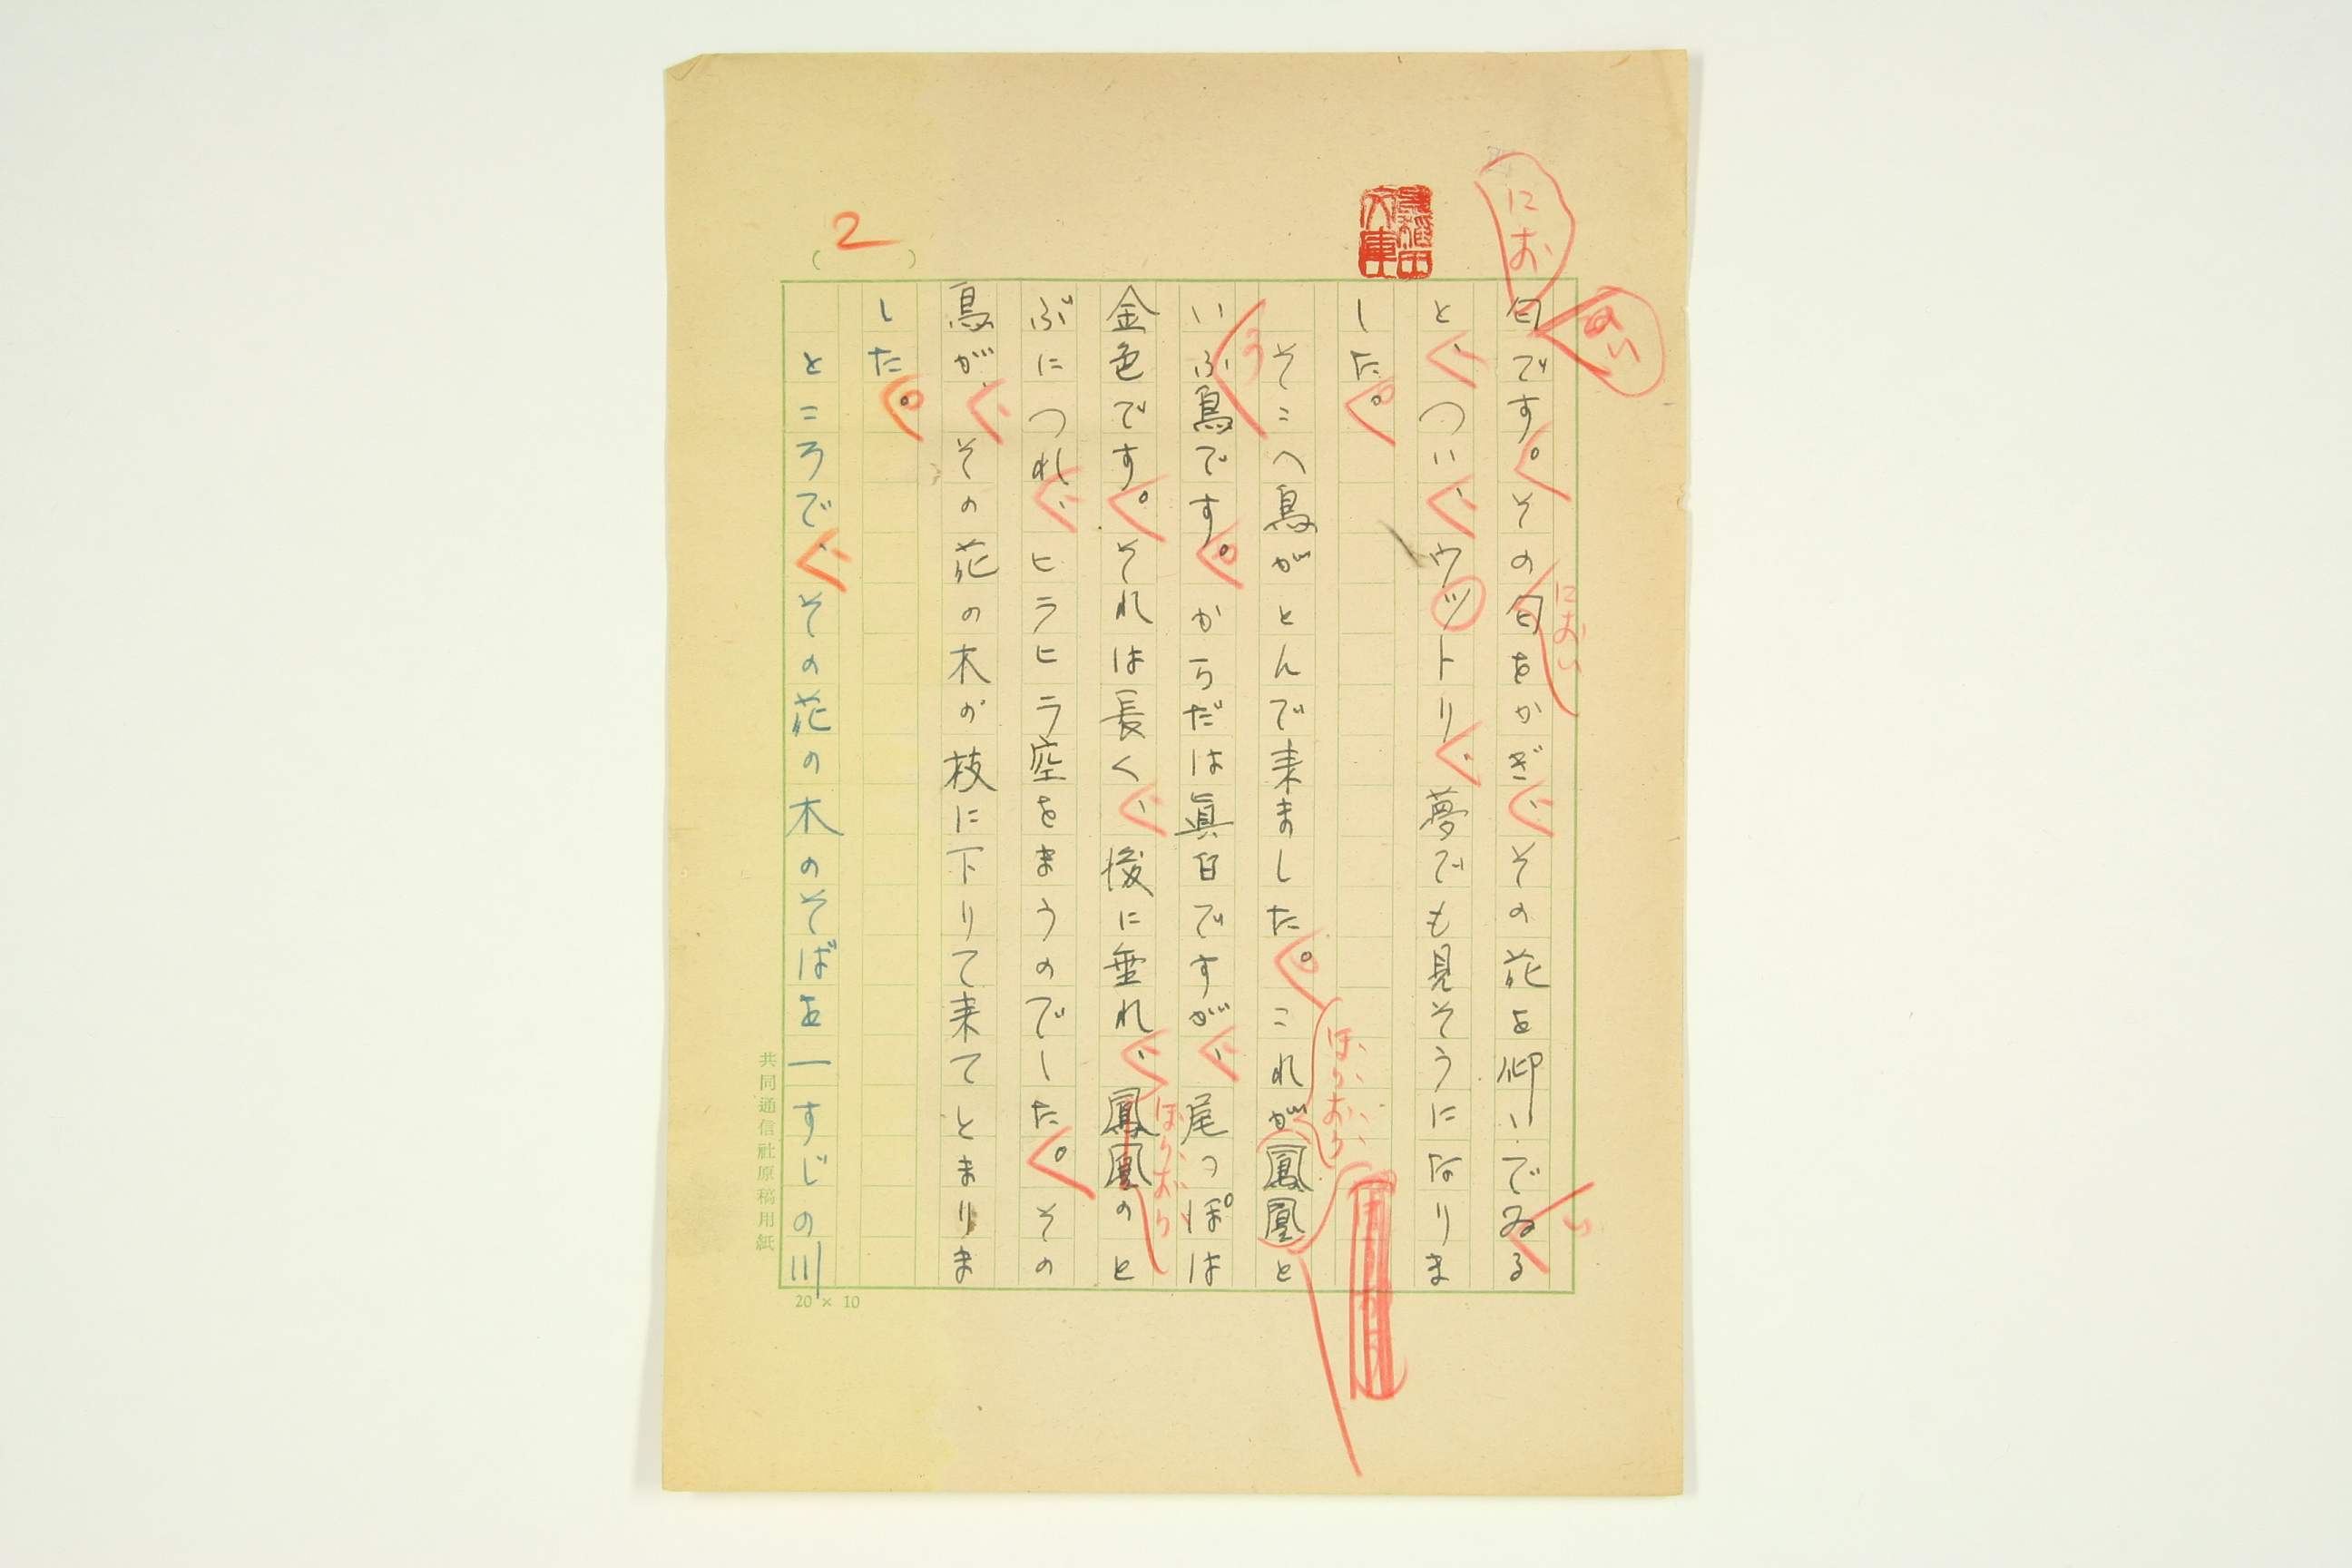 2
匂です。その匂をかぎ、その花を仰いでゐる
と、つい、ウツトリ、夢でも見そうになりま
した。
そこへ鳥がとんで来ました。これが鳳凰と
いふ鳥です。からだは眞白ですが、尾っぽは
金色です。それは長く、後に垂れ、鳳凰のと
ぶにつれ、ヒラヒラ空をまうのでした。その
鳥が、その花の木が枝に下りて来てとまりま
した。
ところで、その花の木のそばを一すじの川
にお
におい
い
う
ほうおう
ほうおう
早稲田文庫
共同通信社原稿用紙
20 × 10